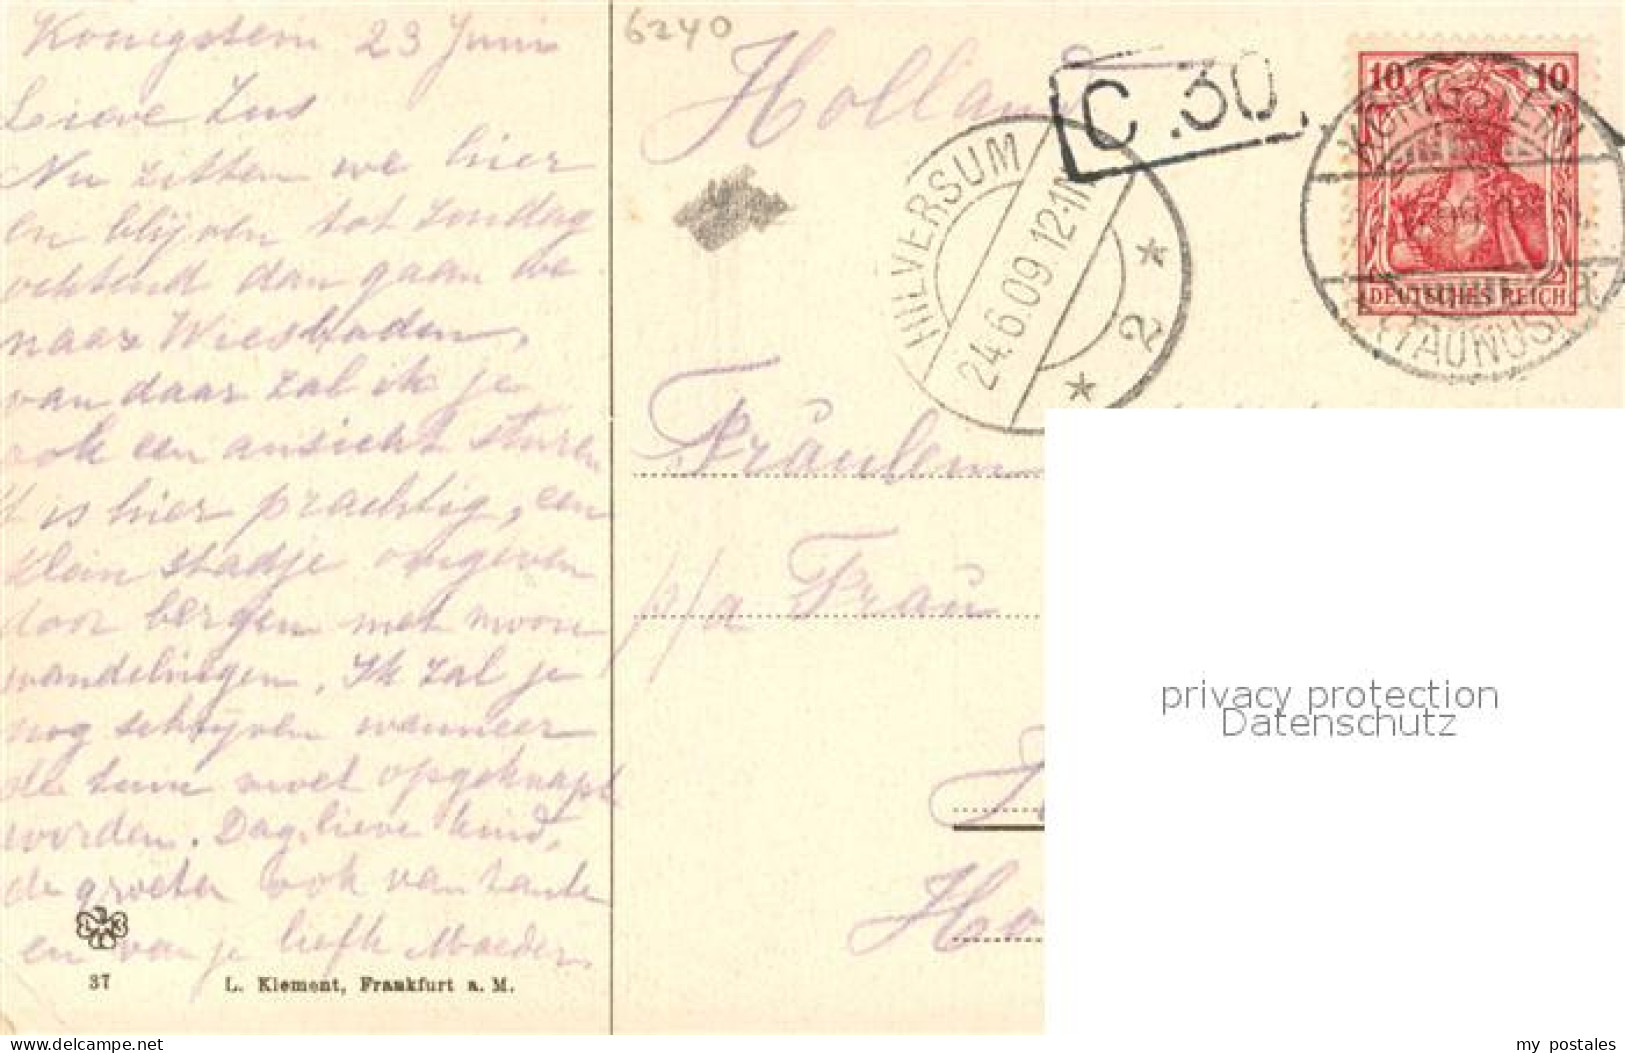 Königstein 23 Juni
Lieve Zus
Nu zitten we hier
en blijven tot Zondag
ochtend dan gaan we
naar Wiesbaden,
van daar zal ik je
ook een ansicht sturen
't is hier prachtig, een
klein stadje omgeven
door bergen met mooie
wandelingen. Ik zal je
nog schrijven wanneer
de tuin moet opgeknapt
worden. Dag lieve kind,
de groeten ook van tante
en van je liefh Moeder.
37
L. Klement, Frankfurt a. M.
6240
Holland
C.30
HILVERSUM
24.6.09 12-1N
2
10 10
DEUTSCHES REICH
KÖNIGSTEIN
(TAUNUS)
Fräulein
p/a Frau
Ho
privacy protection
Datenschutz
www.delcampe.net
my_postales